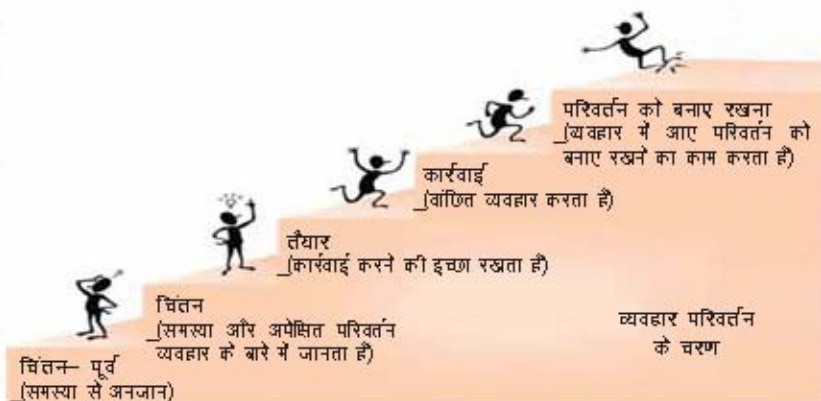 परिवर्तन को बनाए रखना
(व्यवहार में आए परिवर्तन को
बनाए रखने का काम करता है)
कार्रवाई
(वांछित व्यवहार करता है)
तैयार
(कार्रवाई करने की इच्छा रखता है)
चिंतन
(समस्या और अपेक्षित परिवर्तन
व्यवहार के बारे में जानता है)
चिंतन– पूर्व
(समस्या से अनजान)
व्यवहार परिवर्तन
के चरण